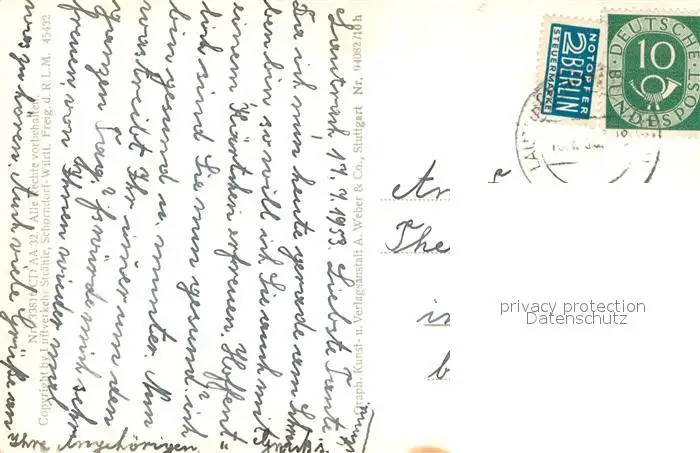 Lautrach 17.9.1953. Liebste Tante
Da ich nun heute gerade am
ben bin so will ich Sie auch mit
einem Kärtchen erfreuen. Hoffent-
lich sind Sie nun gesund? ich
bin gesund u. munter. Nun
was treibt Ihr immer um den
ganzen Tag? Würde mich sehr
freuen von Ihnen wieder mal
was zu hören. Auch viele Grüße an
Ihre Angehörigen.
Graph. Kunst- u. Verlagsanstalt A. Weber & Co., Stuttgart Nr. 94082/10 h
Alle Rechte vorbehalten.
Copyright by Luftverkehr Strähle, Schorndorf-Württ. Freig. d. R L M. 45432
NOTOPFER
2 BERLIN
STEUERMARKE
DEUTSCHE
10
BUNDESPOST
An
The
privacy protection
Datenschutz